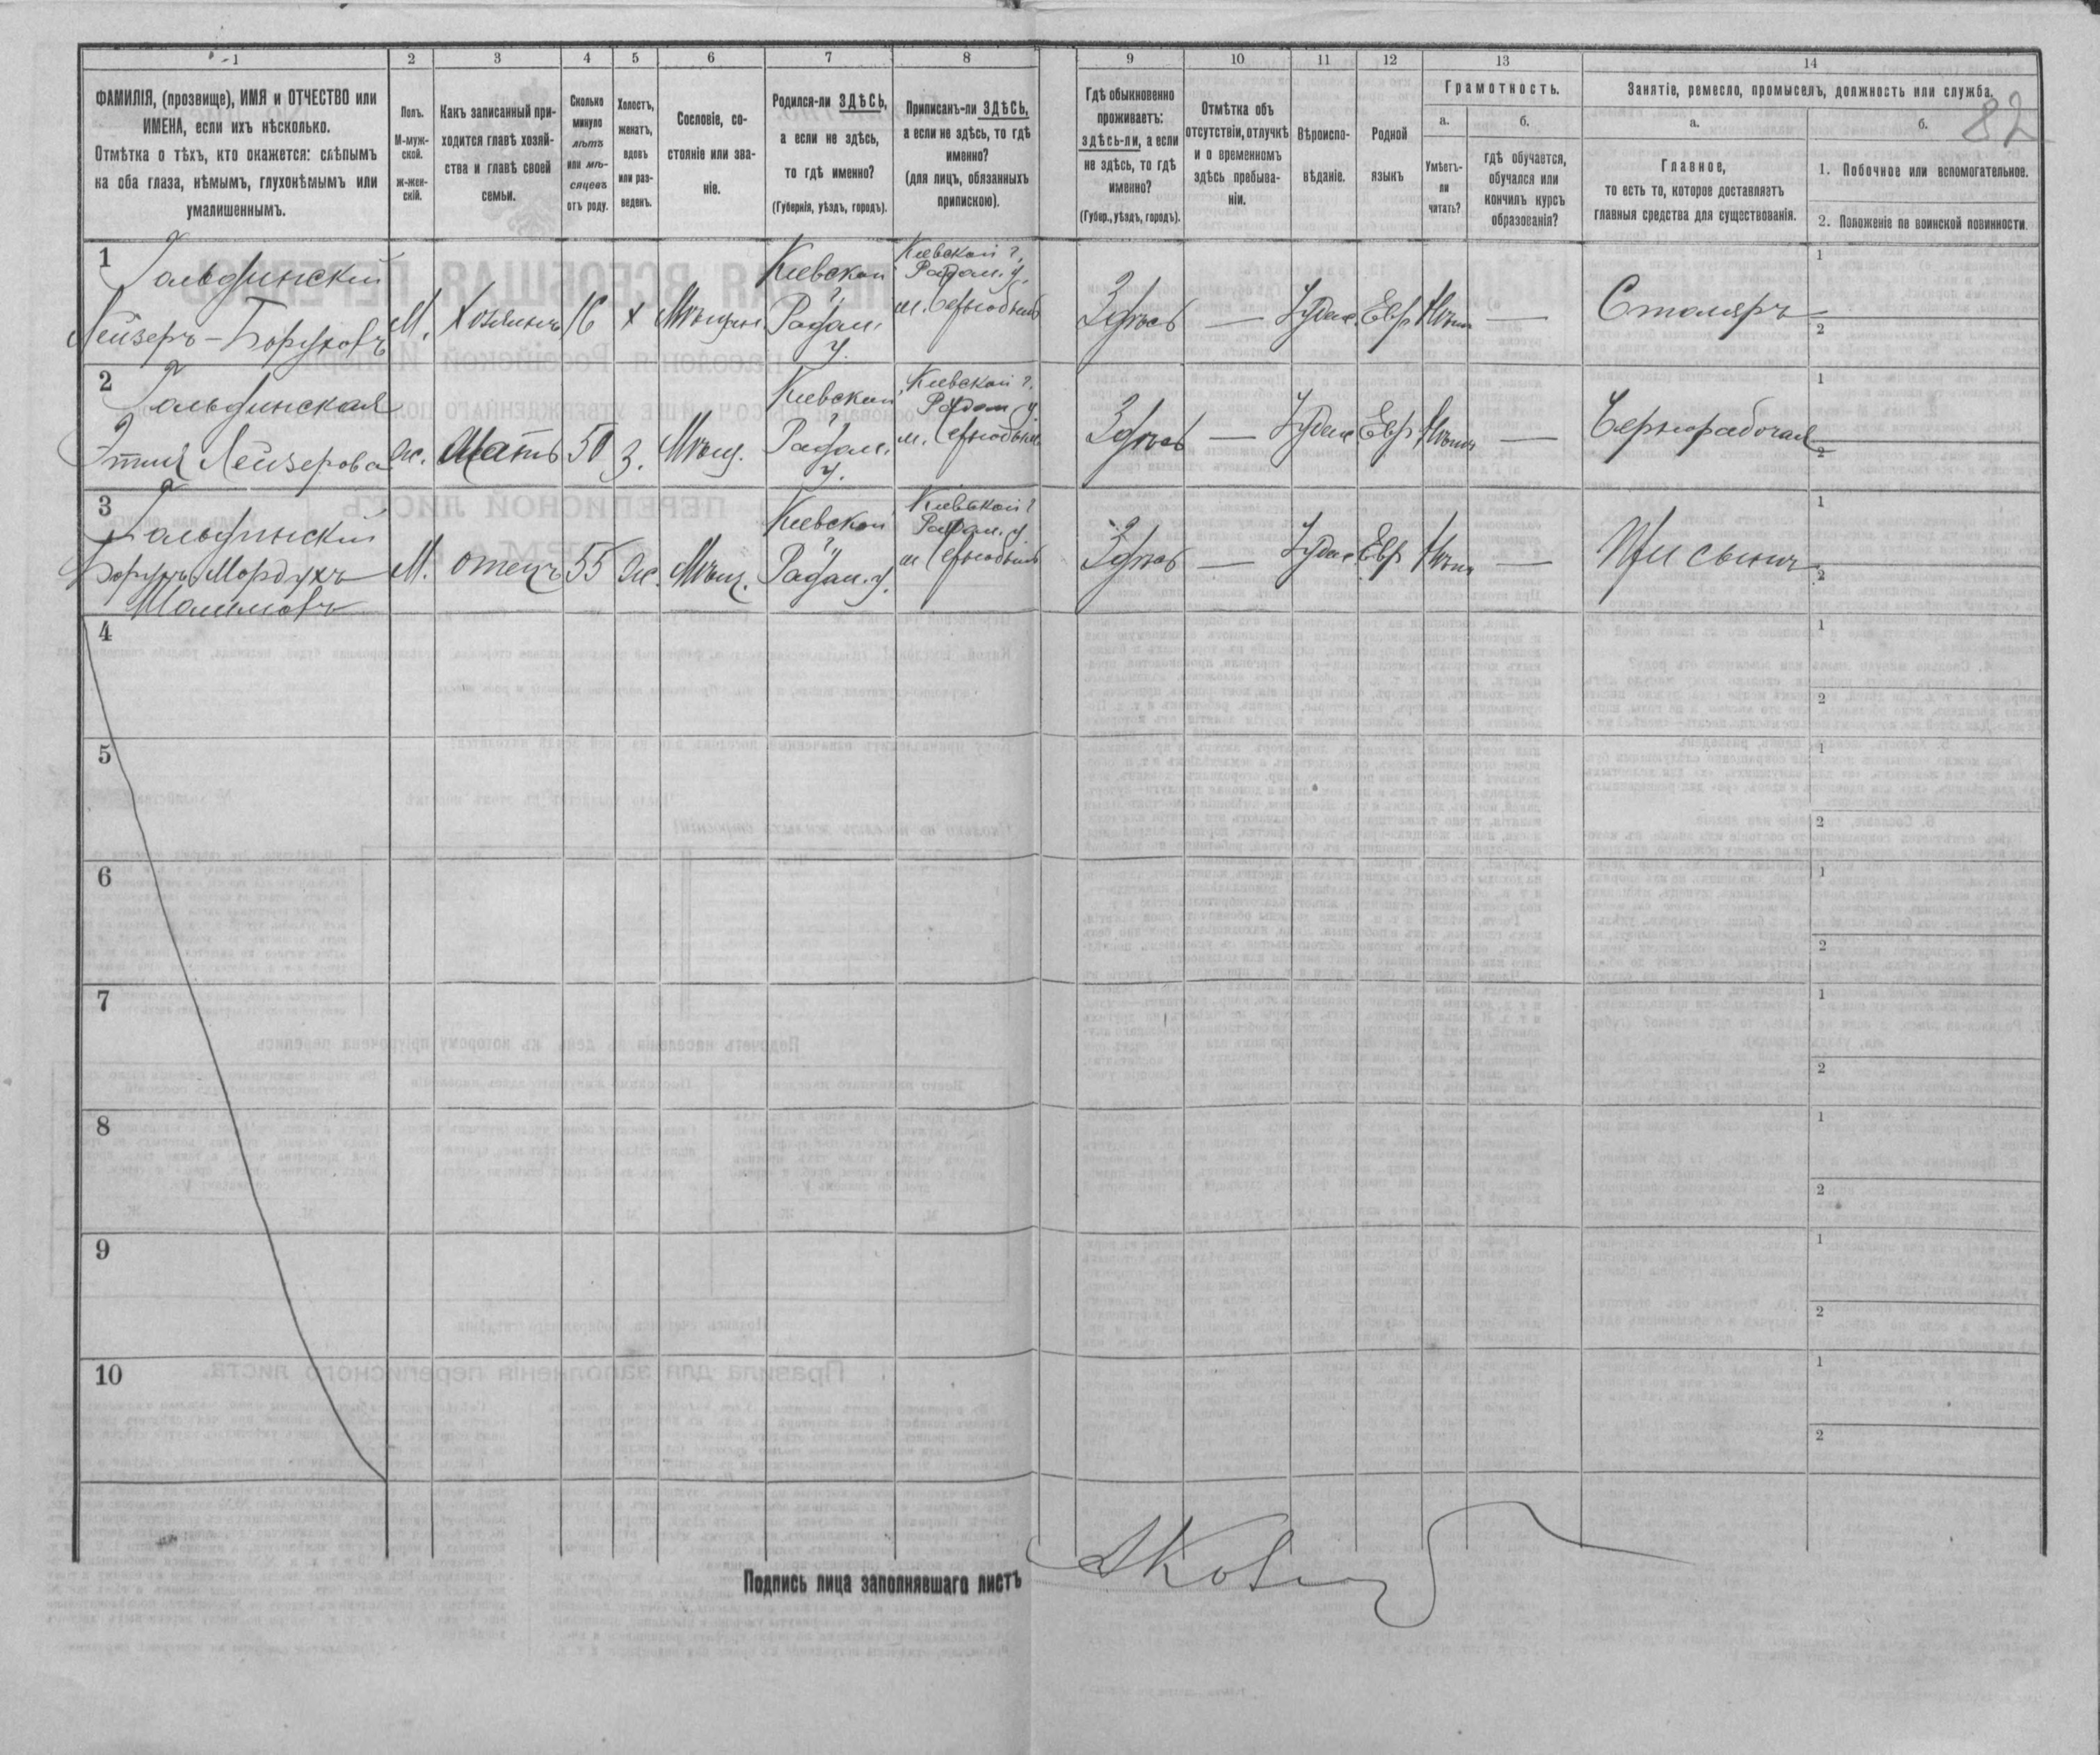 1 2 3 4 5 6 7 8 9 10 11 12 13 14
ФАМИЛІЯ, (прозвище), ИМЯ и ОТЧЕСТВО или
ИМЕНА, если ихъ нѣсколько.
Отмѣтка о тѣхъ, кто окажется: слѣпымъ
на оба глаза, нѣмымъ, глухонѣмымъ или
умалишеннымъ.
Полъ.
М-муж-
ской.
ж-жен-
скій.
Какъ записанный при-
ходится главѣ хозяй-
ства и главѣ своей
семьи.
Сколько
минуло
лѣтъ
или мѣ-
сяцевъ
отъ роду.
Холостъ,
женатъ,
вдовъ
или раз-
веденъ.
Сословіе, со-
стояніе или зва-
ніе.
Родился-ли ЗДѢСЬ,
а если не здѣсь,
то гдѣ именно?
(Губернія, уѣздъ, городъ).
Приписанъ-ли ЗДѢСЬ,
а если не здѣсь, то гдѣ
именно?
(для лицъ, обязанныхъ
припискою).
Гдѣ обыкновенно
проживаетъ:
здѣсь-ли, а если
не здѣсь, то гдѣ
именно?
(Губер., уѣздъ, городъ).
Отмѣтка объ
отсутствіи, отлучкѣ
и о временномъ
здѣсь пребыва-
ніи.
Вѣроиспо-
вѣданіе.
Родной
языкъ
Грамотность.
а.
Умѣетъ-
ли
читать?
б.
гдѣ обучается,
обучался или
кончилъ курсъ
образованія?
Занятіе, ремесло, промыселъ, должность или служба.
82
а.
Главное,
то есть то, которое доставляетъ
главныя средства для существованія.
б.
1. Побочное или вспомогательное.
2. Положеніе по воинской повинности.
1
Гальдинскій
Лейзеръ-Боруховъ
М.
Хозяинъ
16
х
Мѣщан.
Кіевской
г.
Радом.
у.
Кіевской г.
Радом. у.
м. Чернобыль
Здѣсь
—
Іудейс.
Евр
Нѣтъ
—
Столяръ
1
2
2
Гальдинская
Этля Лейзерова
Ж.
Мать
50
З.
Мѣщ.
Кіевской
г.
Радом.
у.
Кіевской г.
Радом у.
м. Чернобыль
Здѣсь
—
Іудейс
Евр
Нѣтъ
—
Чернорабочая
1
2
3
Гальдинскій
Борухъ Мордухъ
М.
отецъ
55
Ж.
Мѣщ.
Кіевской
г.
Радом. у.
Кіевской г
Радом. у.
м Чернобыль
Здѣсь
—
Іудейс
Евр
Нѣтъ
—
При сынѣ
1
2
4
1
2
5
1
2
6
1
2
7
1
2
8
1
2
9
1
2
10
1
2
Подпись лица заполнявшаго листъ